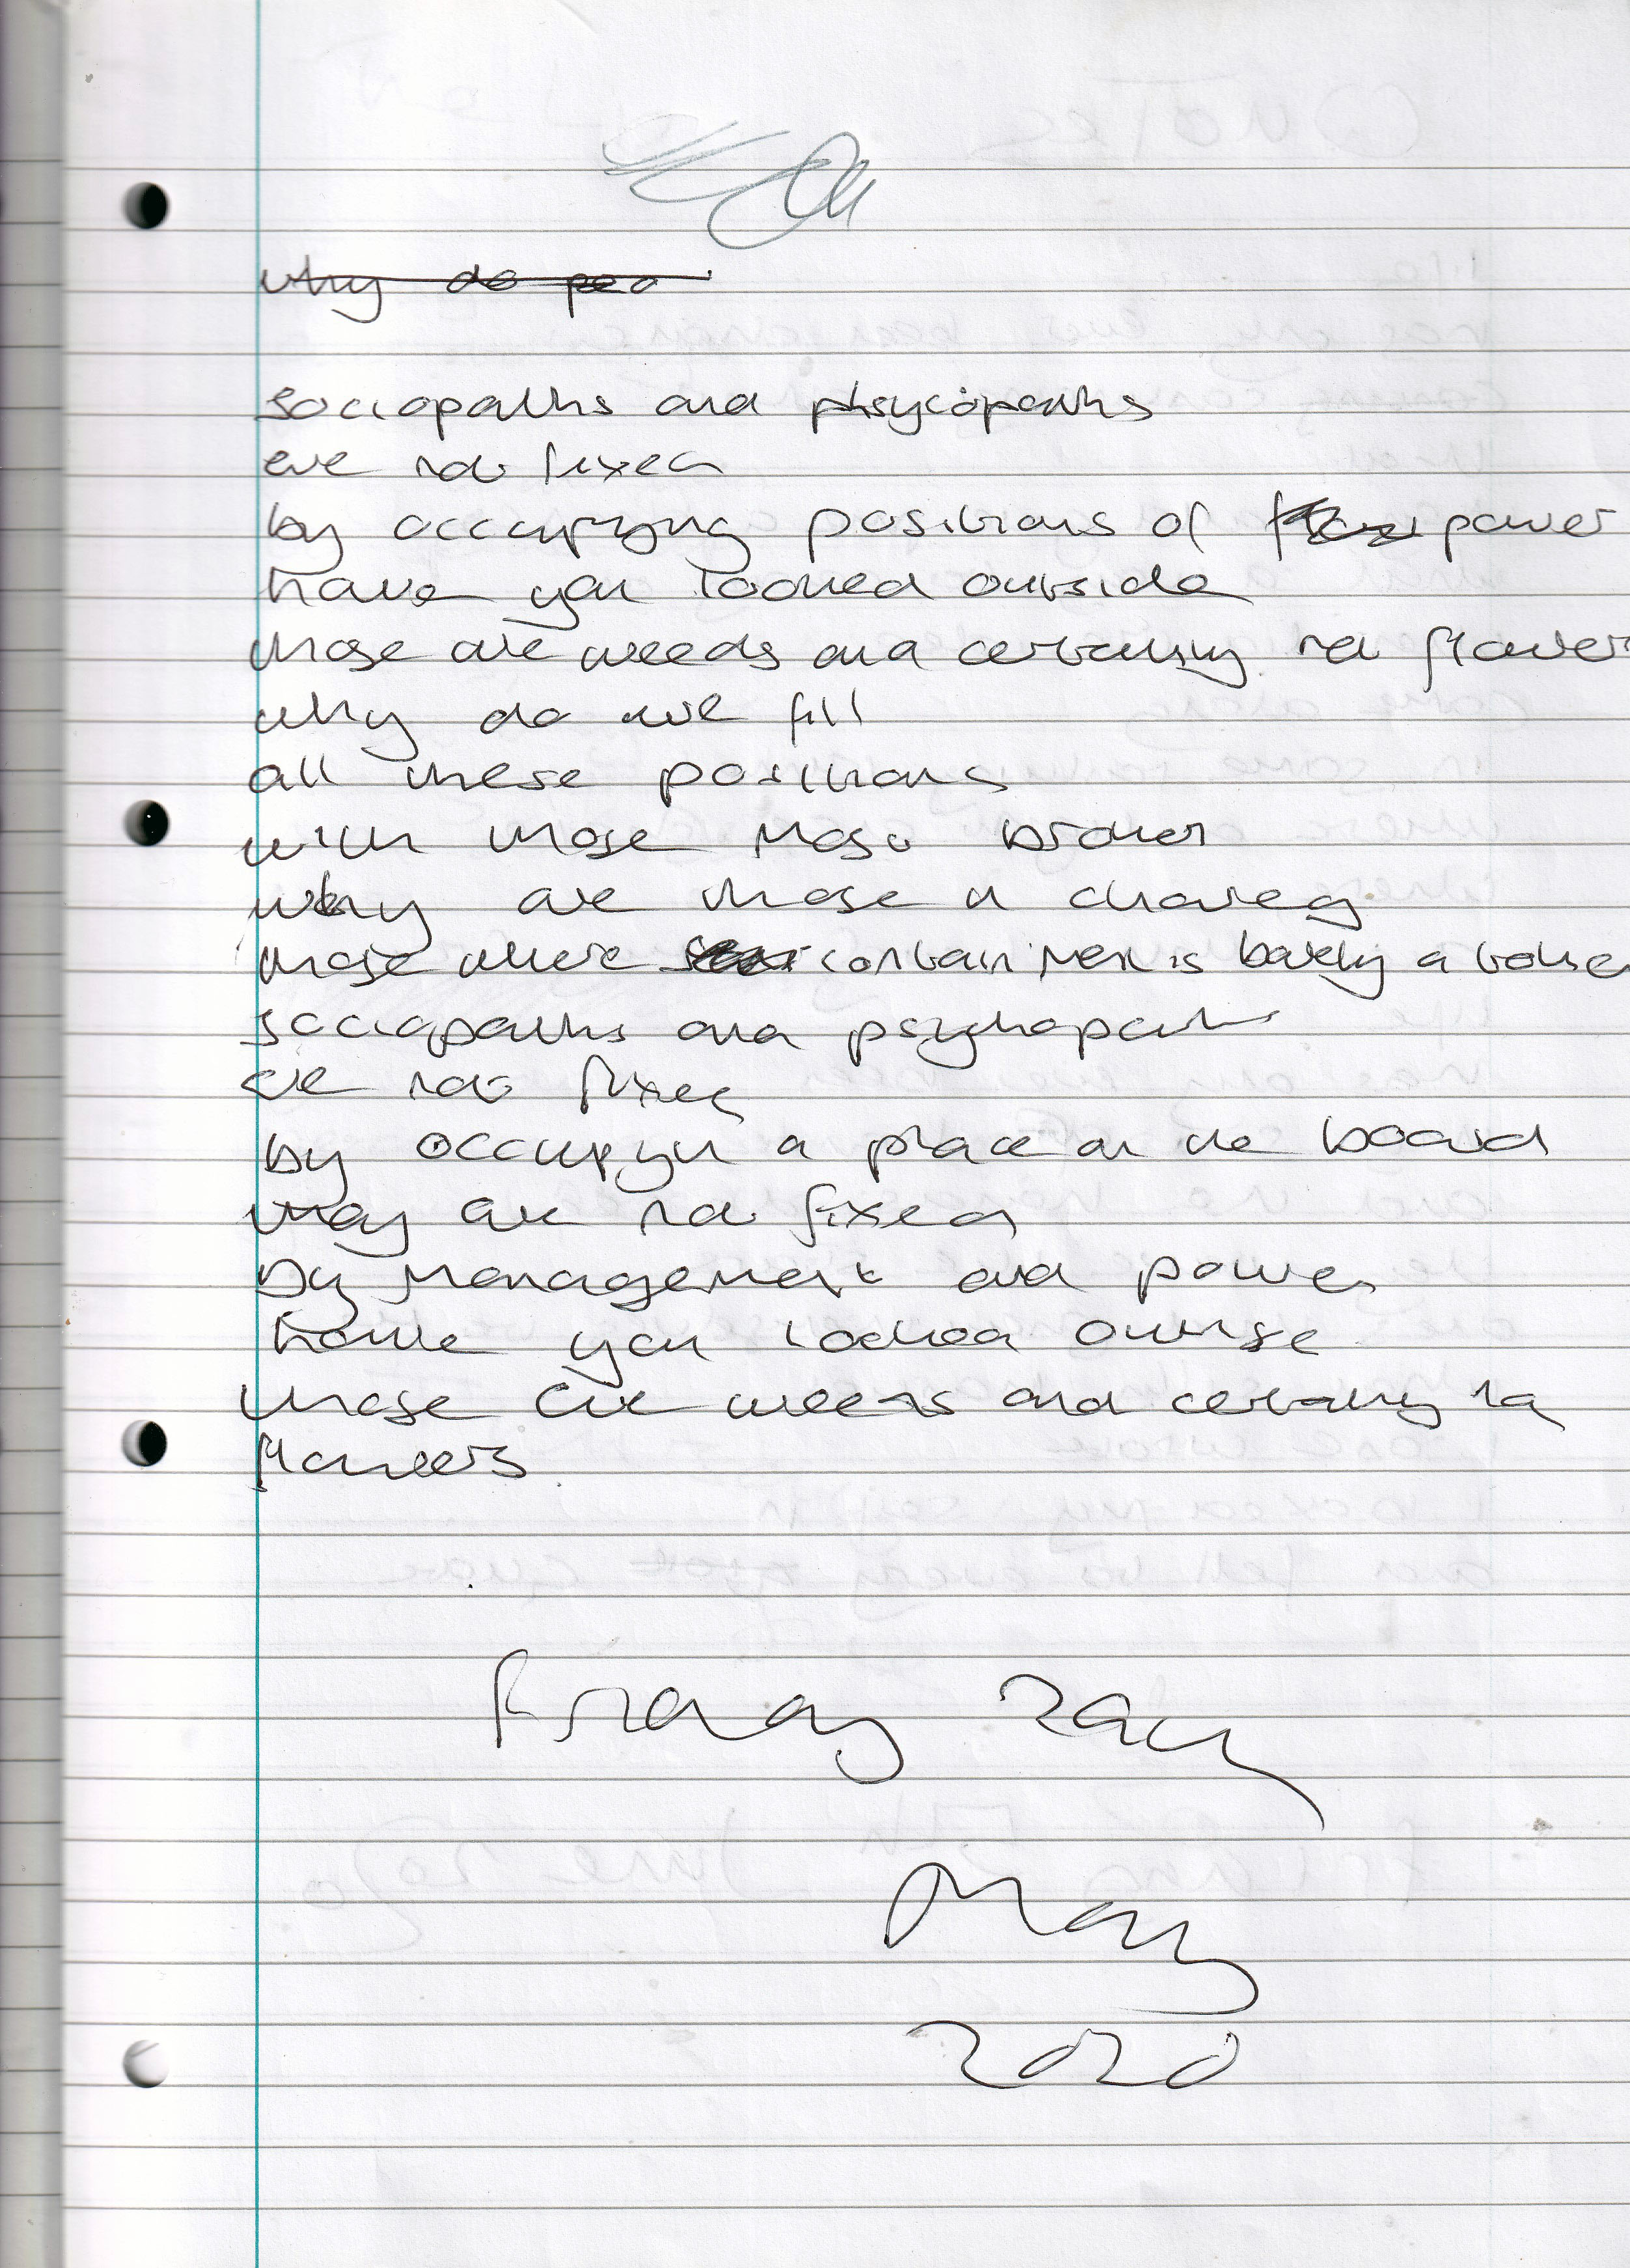 why do peo
sociopaths and phsycopaths
are not fixed
by occupying positions of power
have you looked outside
those are weeds and certainly not flowers
why do we fill
all these positions
with those most broken
why are those in charge
those where containment is barely a
sociopaths and psychopaths
are not fixed
by occupying a place on the board
they are not fixed
by management and power
have you looked outside
those are weeds and certainly not
flowers
Friday 
May
2020